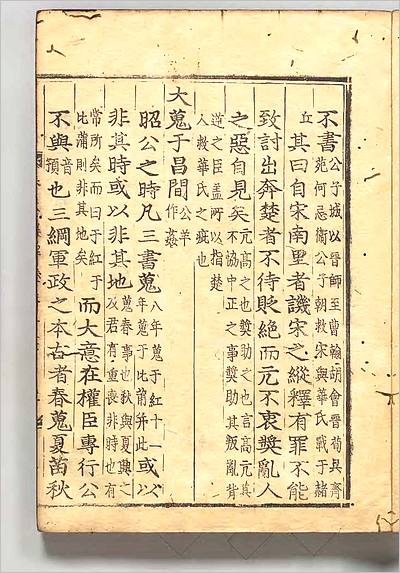 不書公子城以晉師至曹翰胡會晉荀吳齊
苑何忌衛公子朝救宋與華氏戰于赭
丘其曰自宋南里者譏宋之縱釋有罪不能
致討出奔楚者不待貶絕而亢不衷奬亂人
之惡自見矣亢高之也奬助之也言高亢其
不協中正之事奬助其叛亂背
道之臣盖所以指楚
人救華氏之疵也
大蒐于昌間公羊
作姦
昭公之時凡三書蒐八年蒐于紅十一
年蒐于比蒲并此或以
非其時或以非其地蒐春事也秋與夏興之
及君有重喪非時也有
常所矣而曰于紅于
比蒲則非其地矣而大意在權臣專行公
不與音
預也三綱軍政之本古者春蒐夏苗秋